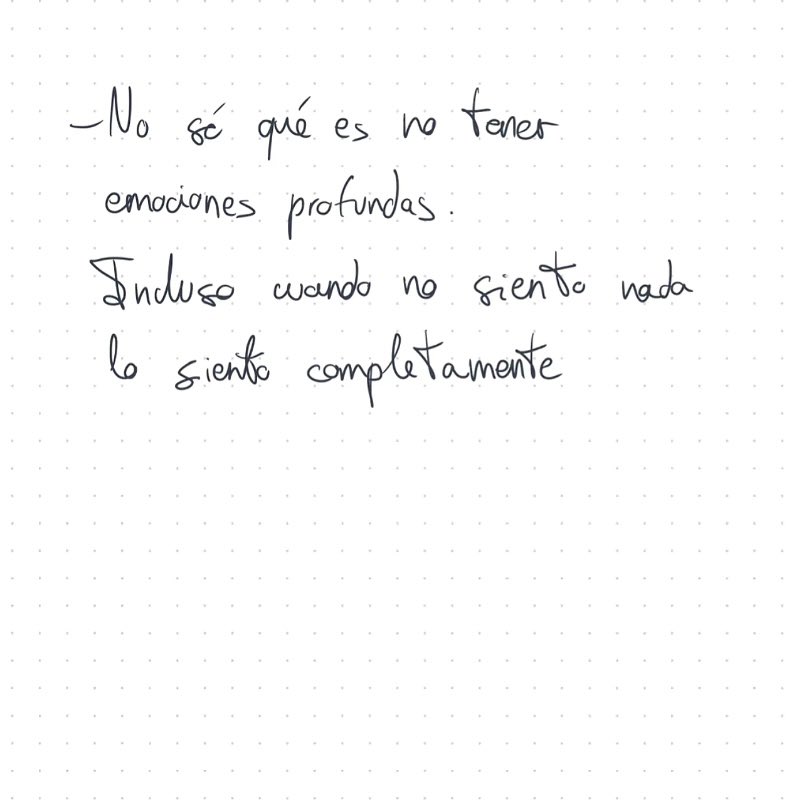 –No sé qué es no tener
emociones profundas.
Incluso cuando no siento nada
lo siento completamente